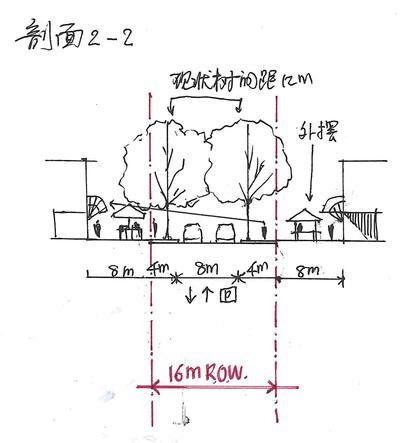 剖面2-2
现状树间距12m
外摆
8m 4m 8m 4m 8m
回
16m R.O.W.